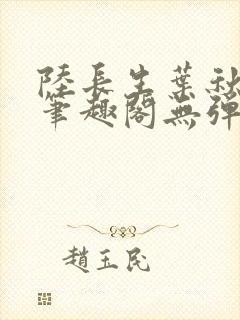 陸長生葉秋
筆趣閣無彈
趙玉民